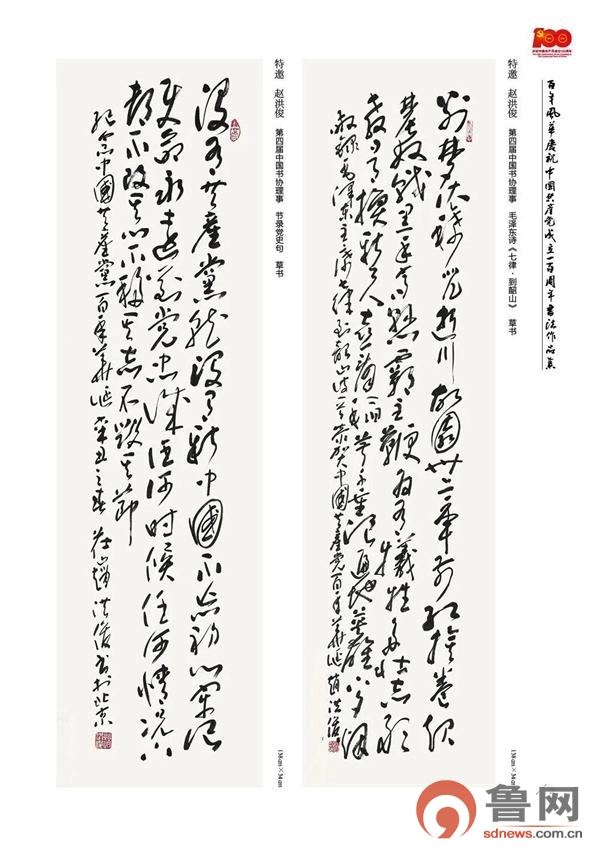 庆祝中国共产党成立100周年
百年风华庆祝中国共产党成立一百周年书法作品展
特邀 赵洪俊 第四届中国书协理事 毛泽东诗《七律·到韶山》 草书
138cm×34cm
别梦依稀咒逝川故園卅二年前红旗卷起
農奴戟黑手高悬霸主鞭为有犧牲多壮志敢
教日月換新天喜看稻菽千重浪遍地英雄下夕烟
敬録毛泽东主席七律到韶山诗一首恭贺中國共產党百年華诞赵洪俊
特邀 赵洪俊 第四届中国书协理事 节录党史句 草书
138cm×34cm
没有共產黨就没有新中國不忘初心牢记
使命永远对党忠诚任何時候任何情况下
都不改其心不移其志不毁其节
纪念中國共產黨一百年華诞辛丑之春 赵洪俊书于北京
鲁网
sdnews.com.cn